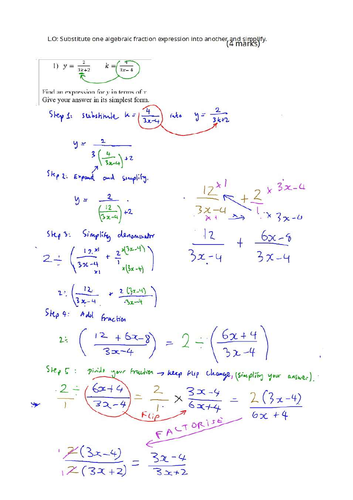 LO: Substitute one algebraic fraction expression into another and simplify.
(4 marks)
1) y = 2/(3k+2) k = 4/(3x-4)
Find an expression for y in terms of x
Give your answer in its simplest form.
Step 1: Substitute k = 4/(3x-4) into y = 2/(3k+2)
y = 2/(3(4/(3x-4))+2)
Step 2: Expand and simplify.
y = 2/((12/(3x-4))+2)
12/(3x-4) ×1 ×1 + 2/1 × 3x-4 × 3x-4
Step 3: Simplify denominator
2 ÷ (12/(3x-4) ×1 ×1 + 2/1 ×(3x-4) ×(3x-4))
12/(3x-4) + (6x-8)/(3x-4)
2 ÷ (12/(3x-4) + 2(3x-4)/(3x-4))
Step 4: Add fraction
2 ÷ ((12 + 6x-8)/(3x-4)) = 2 ÷ ((6x+4)/(3x-4))
Step 5: divide your fraction → keep flip change, (simplify your answer).
2/1 ÷ (6x+4)/(3x-4) = 2/1 × (3x-4)/(6x+4) = 2(3x-4)/(6x+4)
FLIP
FACTORISE
2(3x-4)/2(3x+2) = (3x-4)/(3x+2)